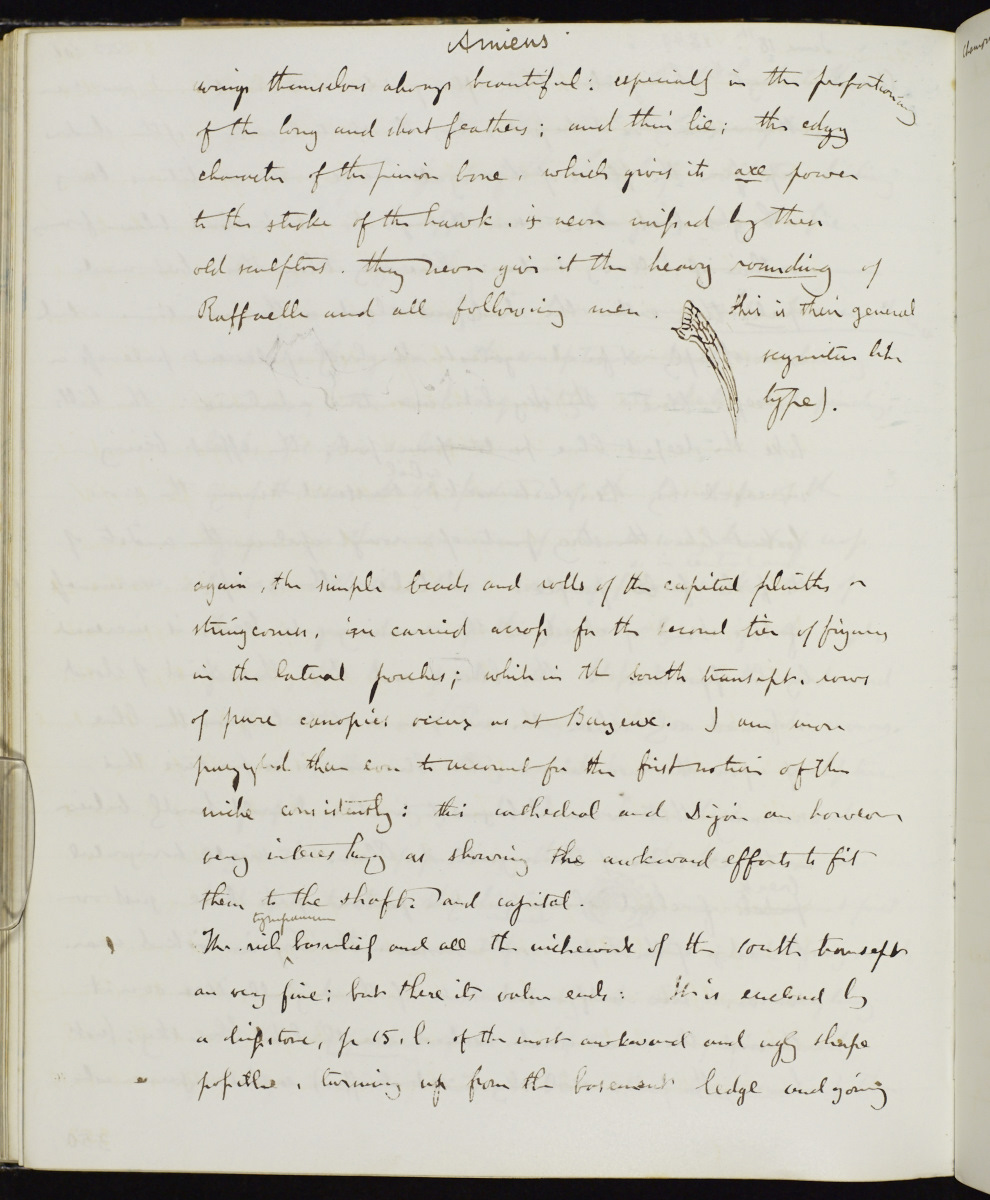 Amiens
wings themselves always beautiful: especially in the proportioning
of the long and short feathers; and their lie; the edgy
character of the pinion bone, which gives its axe power
to the stroke of the hawk. is never missed by these
old sculptors. they never give it the heavy rounding of
Raffaelle and all following men. this is their general
scymitar like
type).
again, the simple beads and rolls of the capital plinths or
stringcourses, are carried across for the second tier of figures
in the lateral porches; while in the south transept, rows
of pure canopies occur as at Bayeux. I am more
puzzled than ever to account for the first notion of the
niche consistently: this cathedral and Dijon are however
very interesting as showing the awkward efforts to fit
them to the shaft and capital.
tympanum
The rich basrelief and all the nichework of the south transept
are very fine; but there its value ends: It is enclosed by
a dripstone, p 15. l. of the most awkward and ugly shape
possible, turning up from the basement ledge and going